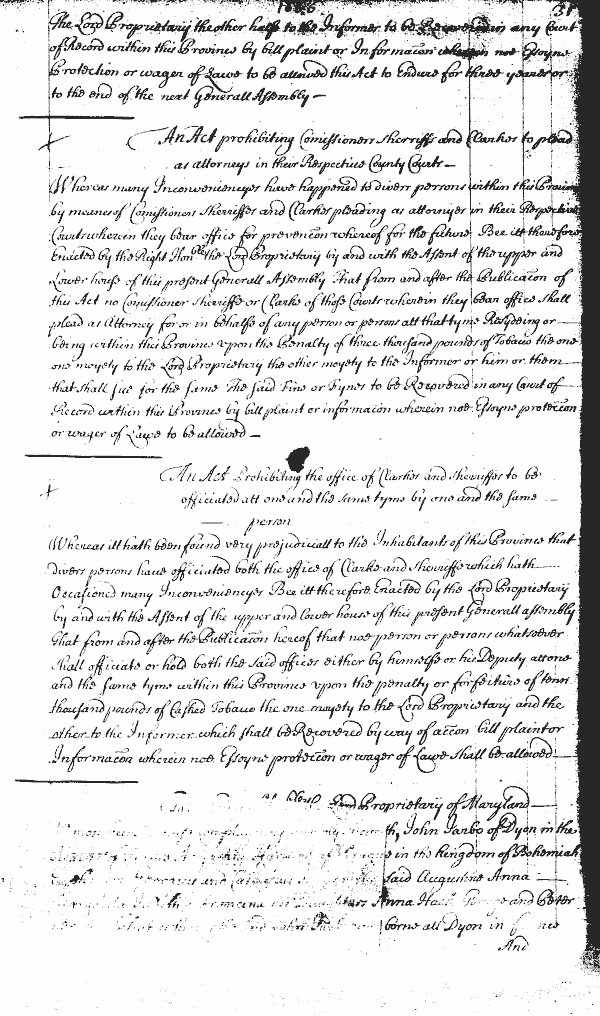 1666 31
The Lord Proprietary the other halfe to the Informer to be Recovered in any Court
of Record within this Province by bill plaint or Informacōn wherein noe Essoyne
Protection or wager of Lawe to be allowed this Act to Endure for three yeares or
to the end of the next Generall Assembly —
An Act prohibiting Comissioners Sherriffs and Clarkes to plead
as attorneys in their Respective County Courts —
Whereas many Inconveniencyes have happened to divers persons within this Province
by meanes of Comissioners Sherriffes and Clarkes pleading as attornyes in their Respective
Courts wherein they bear office for prevencōn whereof for the future Bee itt therefore
Enacted by the Right Hon:ble the Lord Proprietary by and with the Assent of the upper and
Lower house of this present Generall Assembly That from and after the Publicacōn of
this Act no Comissioner Sherriffe or Clarke of those Courts wherein they bear office shall
plead as Attorney for or in behalfe of any person or persons att that tyme Resydeing or —
being within this Province upon the Penalty of three thousand pounds of Tobacco the one
one moyety to the Lord Proprietary the other moyety to the Informer or him or them —
that shall sue for the same The said Fine or Fynes to be Recovered in any Court of —
Record within this Province by bill plaint or informacōn wherein noe Essoyne proteccōn
or wager of Lawe to be allowed —
An Act Prohibiting the office of Clarkes and sherriffes to be
officiated att one and the same tyme by one and the same —
— person
Whereas itt hath been found very prejudiciall to the Inhabitants of this Province that
divers persons have officiated both the office of Clarke and Sherriffe which hath —
Occasioned many Inconveniencyes Bee itt therefore Enacted by the Lord Proprietary
by and with the Assent of the upper and lower house of this present Generall assembly
That from and after the Publicacōn hereof that noe person or persons whatsoever
shall officiate or hold both the said offices either by himselfe or his Deputy att one
and the same tyme within this Province upon the penalty or forfeiture of tenn
thousand pounds of Casked Tobacco the one moyety to the Lord Proprietary and the
other to the Informer which shall be Recovered by way of accōn bill plaint or
Informacōn wherein noe Essoyne proteccōn or wager of Lawe shall be allowed
Proprietary of Maryland —
John Jarbo of Dyon in the
in the kingdom of Bohemiah
said Augustine Anna —
Anna Hack George and Peter
borne att Dyon in
And